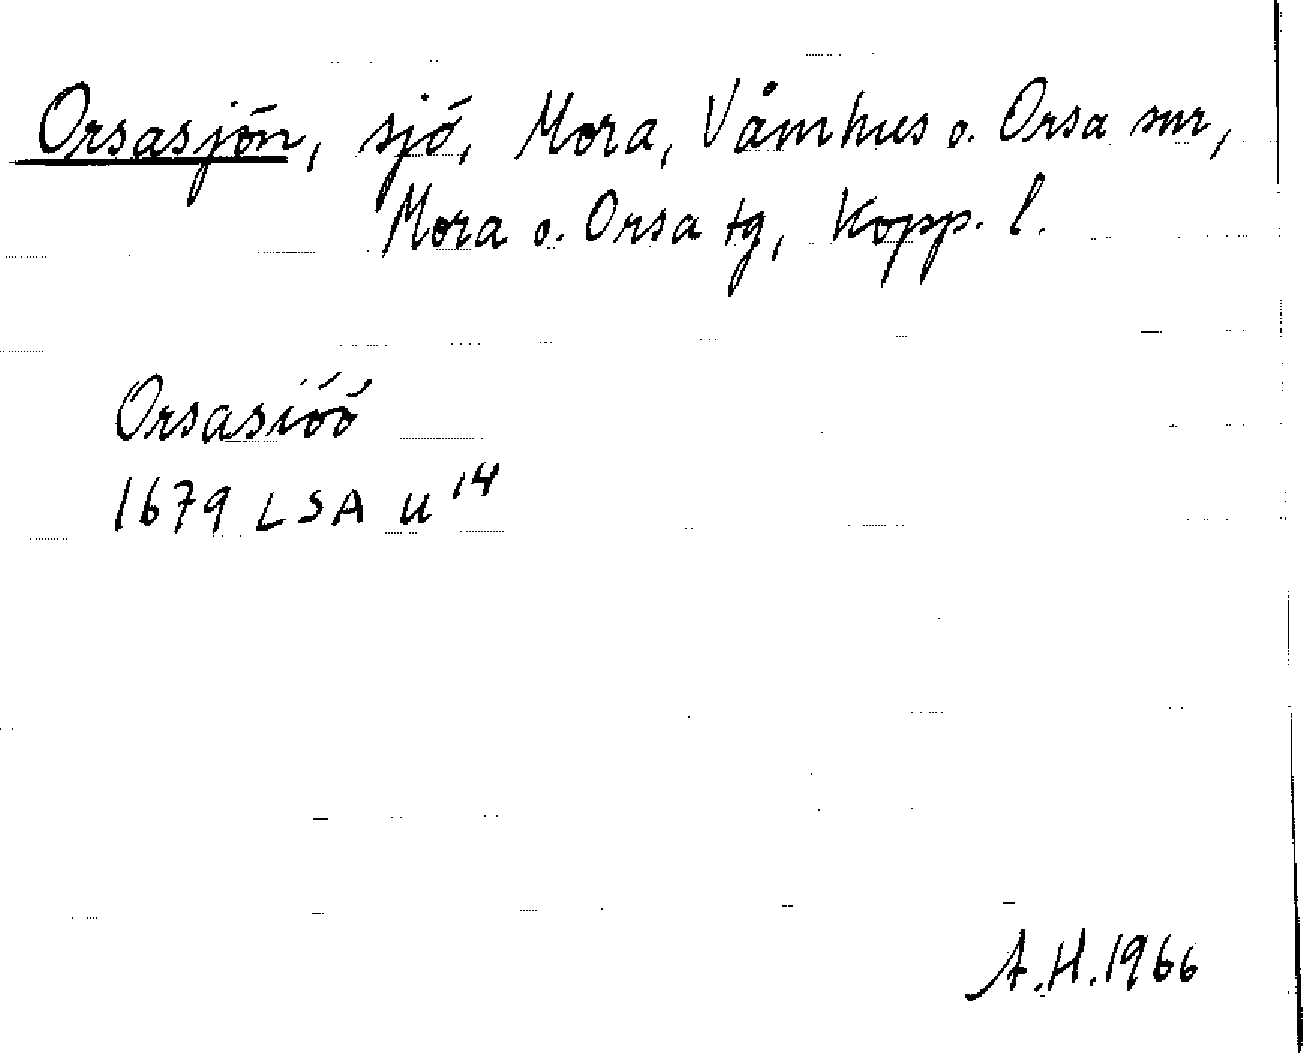 Orsasjön, sjö, Mora, Våmhus o. Orsa snr,
Mora o. Orsa tg, Kopp. l.
Orsasiöö
1679 LSA U 14
A.H. 1966